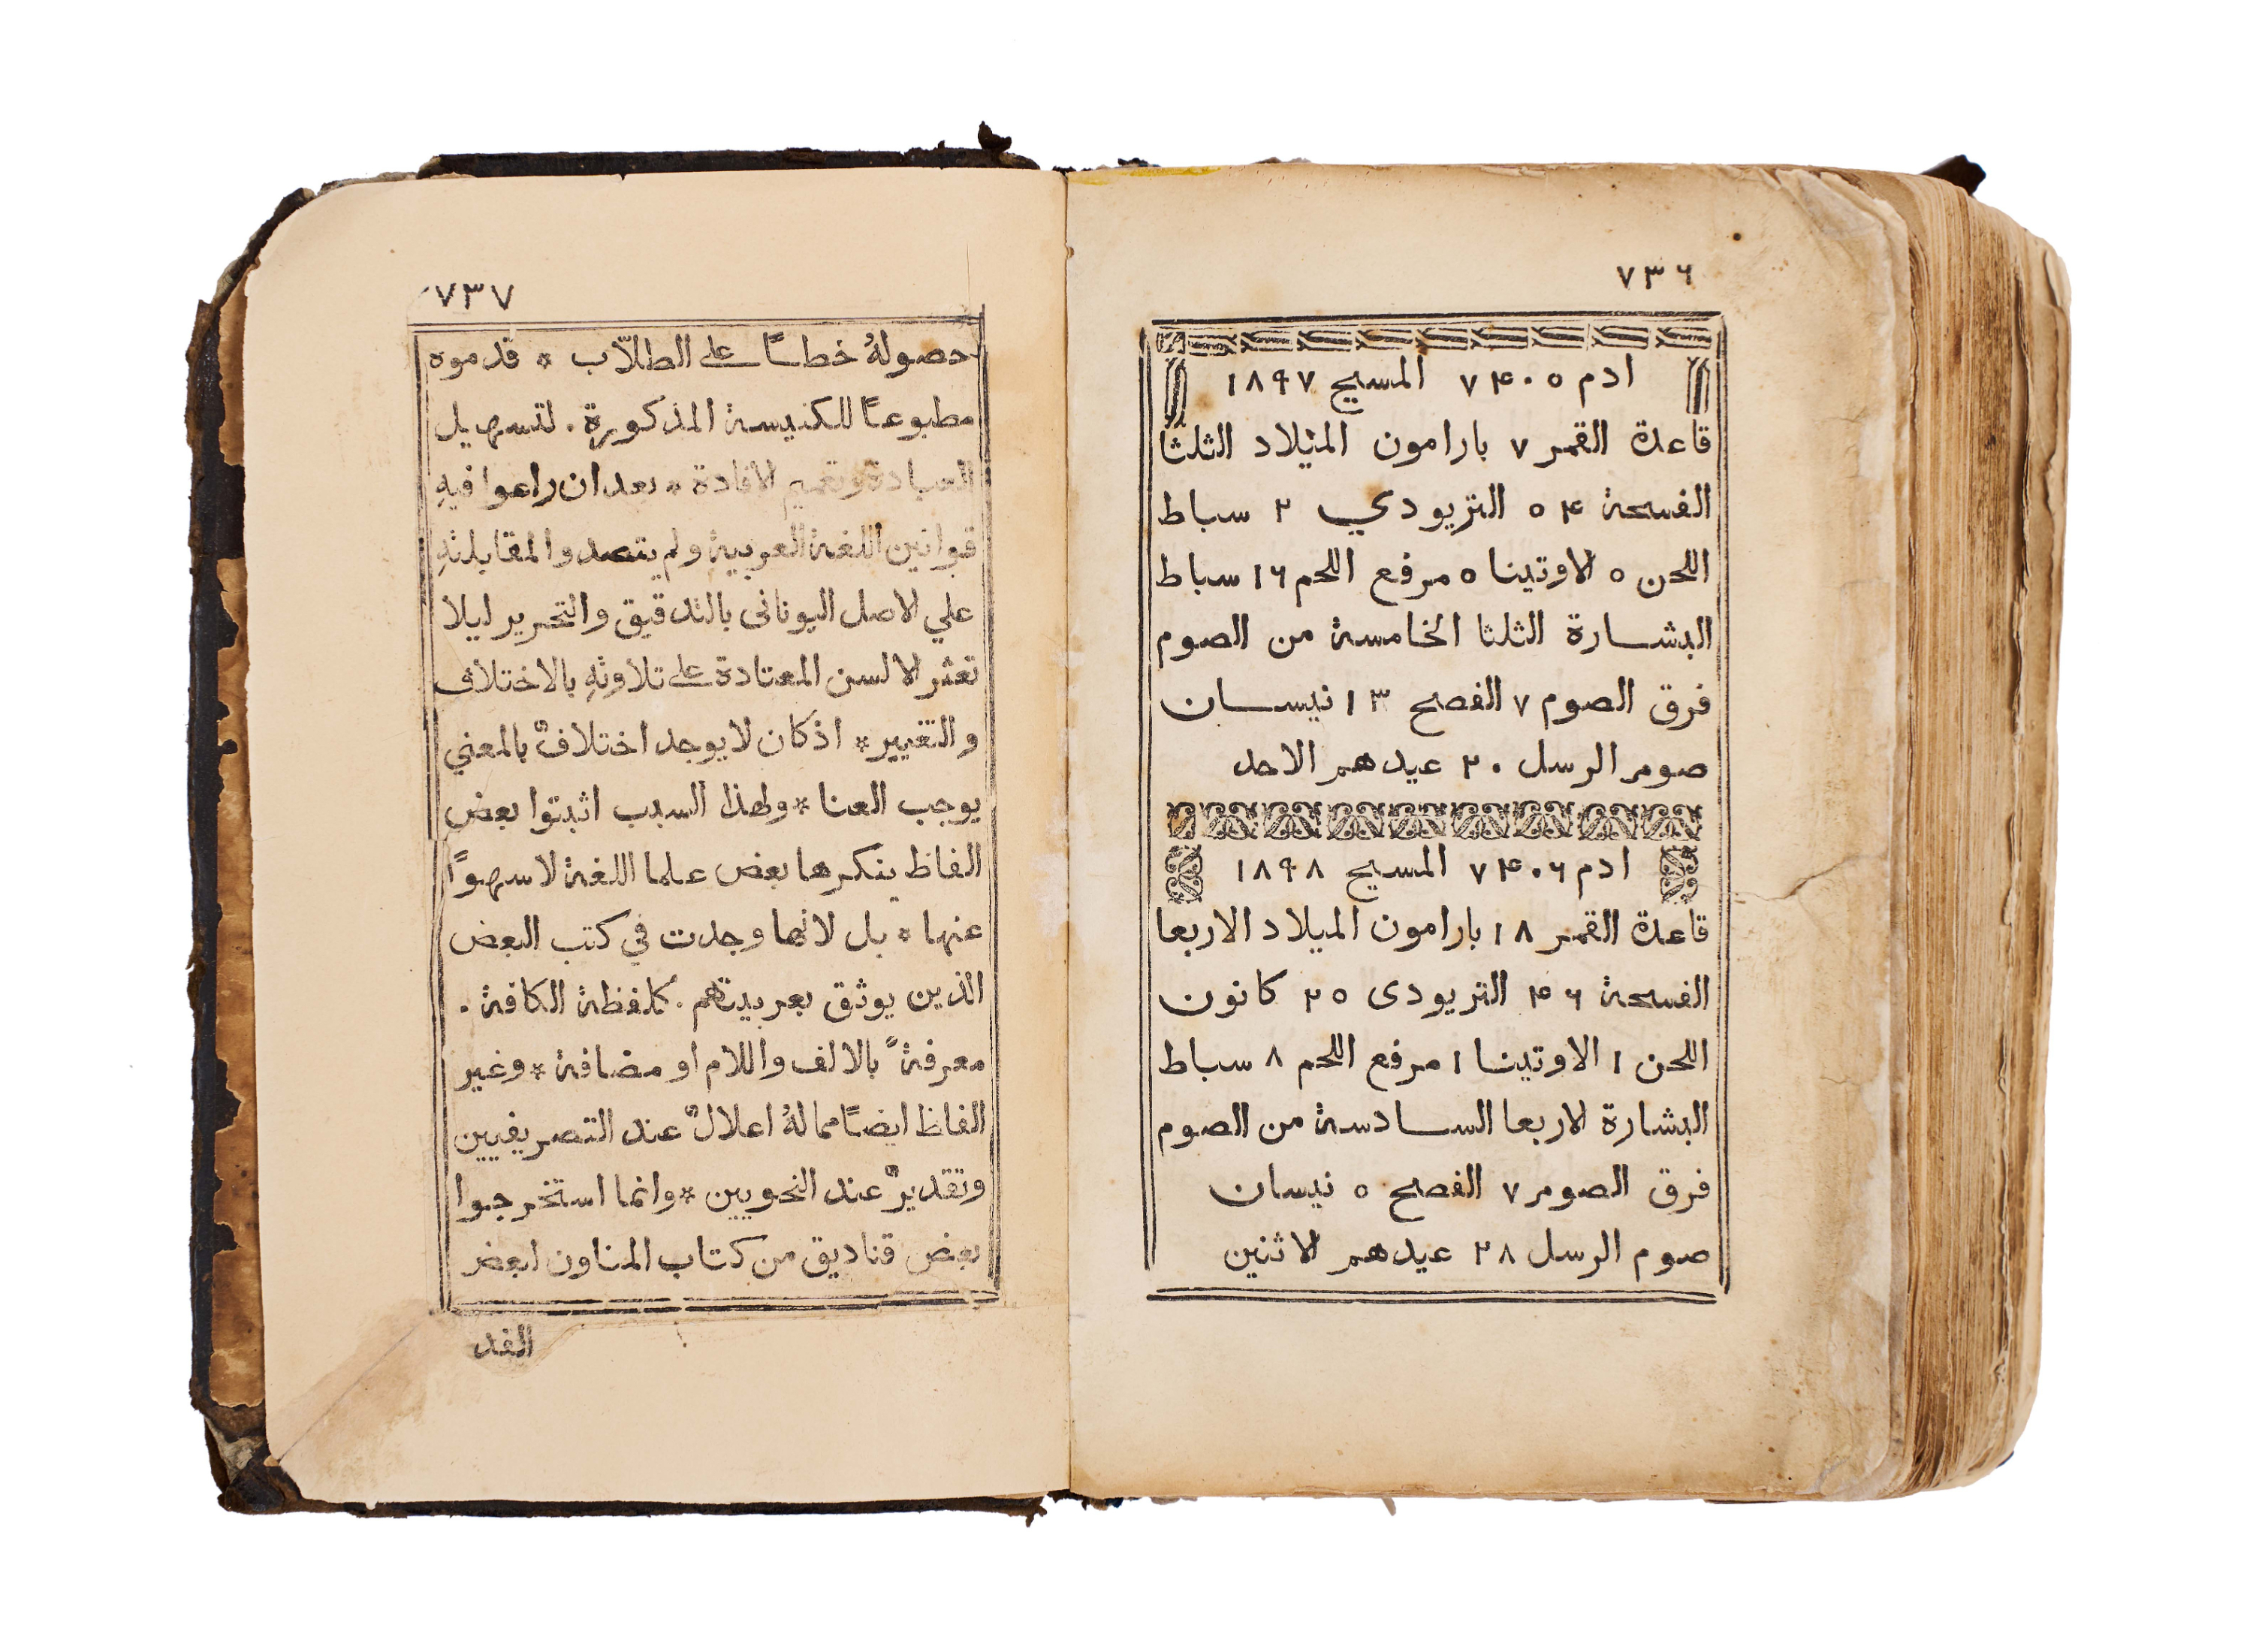 ٧٣٦
ادم ٧۴٠٥ المسيح ١٨٩٧
قاعدة القمر ٧ بارامون الميلاد الثلثا
الفسحة ۴ ٥ التريودي ٢ سباط
اللحن ٥ الاوتينا ٥ مرفع اللحم ١٦ سباط
البشارة الثلثا الخامسة من الصوم
فرق الصوم ٧ الفصح ١٣ نيسان
صوم الرسل ٢٠ عيدهم الاحد
ادم ٧۴٠٦ المسيح ١٨٩٨
قاعدة القمر ١٨ بارامون الميلاد الاربعا
الفسحة ۴٦ التريودى ٢٥ كانون
اللحن ١ الاوتينا ١ مرفع اللحم ٨ سباط
البشارة الاربعا السادسة من الصوم
فرق الصوم ٧ الفصح ٥ نيسان
صوم الرسل ٢٨ عيدهم الاثنين
٧٣٧
حصولهُ خطاً على الطلاّب * قدموه
مطبوعاً للكنيسة المذكورة . لتسهيل
العبادة وتعميم الافادة * بعد ان راعوا فيهِ
قوانين اللغة العربية ولم يتصدوا لمقابلتهِ
علي الاصل اليونانى بالتدقيق والتحرير ليلا
تعثر الالسن المعتادة على تلاوتهِ بالاختلاف
والتغيير * اذ كان لا يوجد اختلافٌ بالمعني
يوجب العنا * ولهذا السبب اثبتوا بعض
الفاظ ينكرها بعض علما اللغة لا سهوًا
عنها * بل لانها وجدت في كتب البعض
الذين يوثق بعربيتهم . كلفظة الكافة .
معرفةً بالالف واللام او مضافة * وغير
الفاظ ايضاً مما لهُ اعلالٌ عند التصريفيين
وتقديرٌ عند النحويين * وانما استخرجوا
بعض قناديق من كتاب المناون لبعض